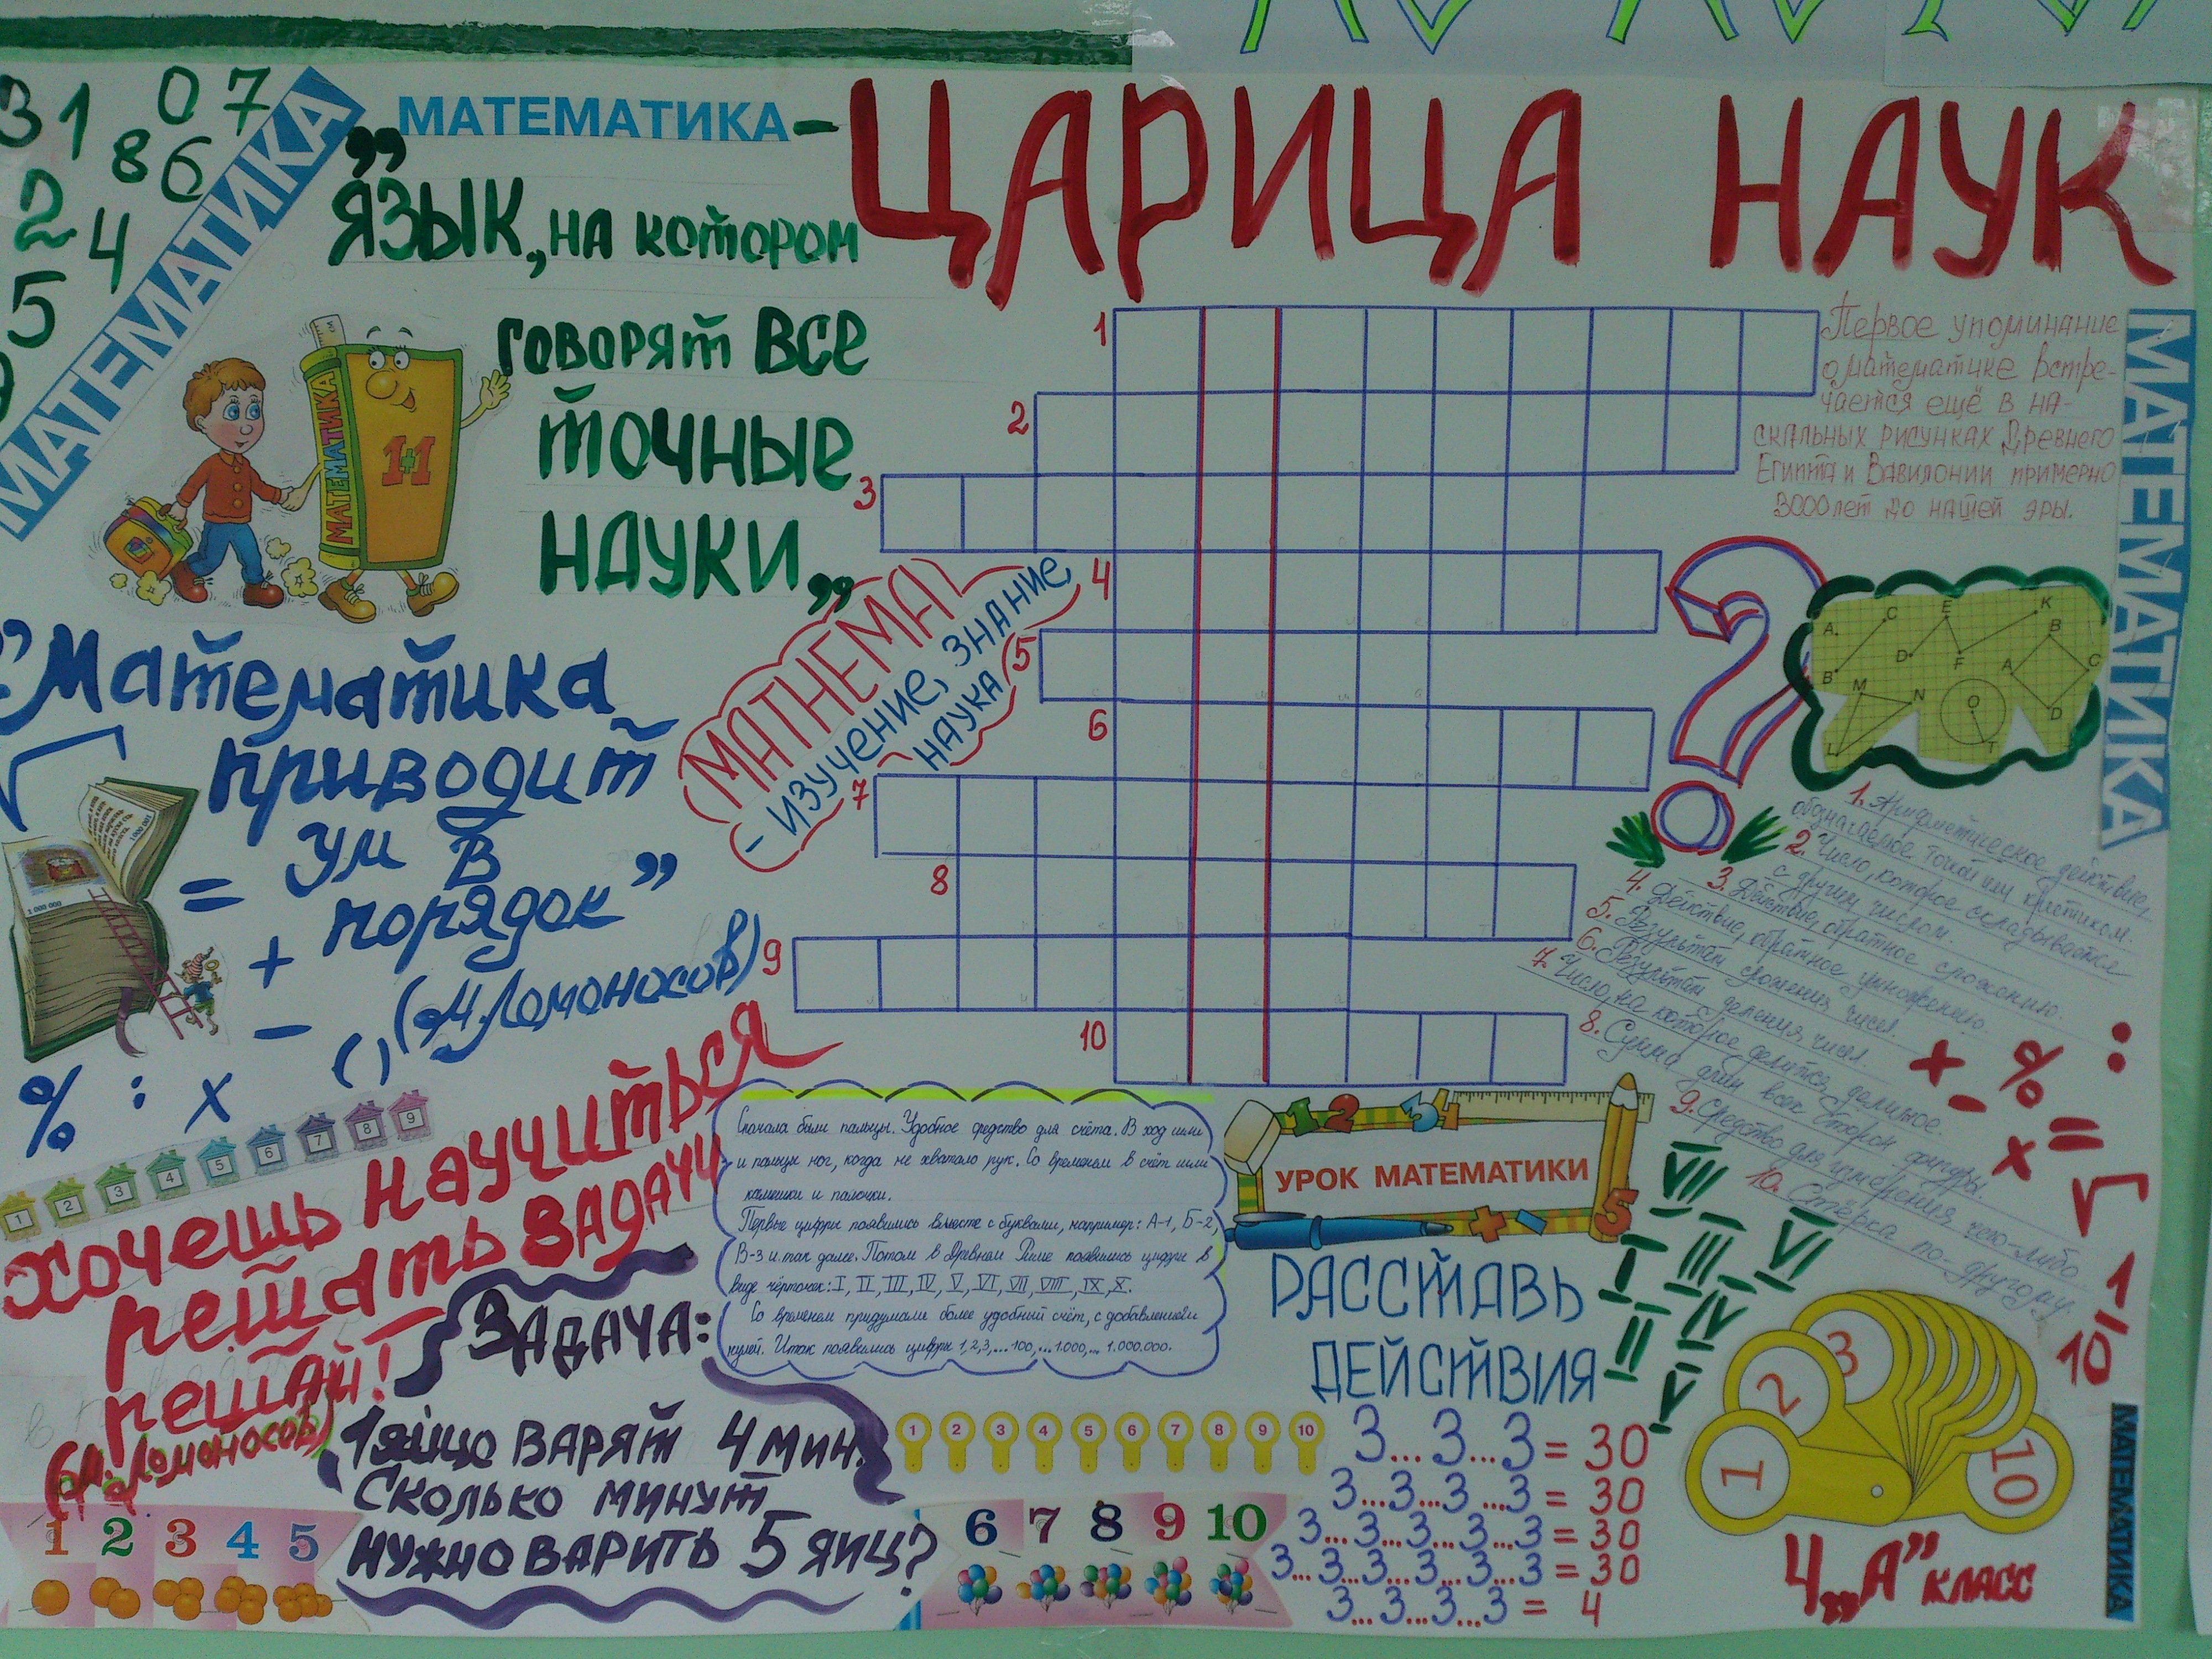 3 1 0 7
8 6
2 4
5
МАТЕМАТИКА
МАТЕМАТИКА – ЦАРИЦА НАУК
„ЯЗЫК, НА КОТОРОМ
ГОВОРЯТ ВСЕ
ТОЧНЫЕ
НАУКИ„
МАТЕМАТИКА
1+1
"Математика
приводит
ум в
порядок"
(М.Ломоносов)
√
=
+
–
( )
% : х
1 000 001
1 000 000
1 2 3 4 5 6 7 8 9
ХОЧЕШЬ НАУЧИТЬСЯ
РЕШАТЬ ЗАДАЧИ
РЕШАЙ!
(М.Ломоносов)
1 2 3 4 5
ЗАДАЧА:
1 яйцо ВАРЯТ 4 мин.
СКОЛЬКО МИНУТ
НУЖНО ВАРИТЬ 5 ЯИЦ?
MATHEMA
- ИЗУЧЕНИЕ, ЗНАНИЕ,
НАУКА
1
2
3
4
5
6
7
8
9
10
Первое упоминание
о математике встре-
чается ещё в на-
скальных рисунках Древнего
Египта и Вавилонии примерно
3000 лет до нашей эры.
МАТЕМАТИКА
A C E K
B D F A B C
M N O D
L T
1. Арифметическое действие,
обозначаемое точкой или крестиком.
2. Число, которое складывается
с другим числом.
3. Действие, обратное сложению.
4. Действие, обратное умножению.
5. Результат сложения чисел.
6. Результат деления чисел.
7. Число, на которое делится делимое.
8. Сумма длин всех сторон фигуры.
9. Средство для измерения чего-либо
10. Стёрка по-другому.
+ % :
– х =
√
1/10
VII
I III VI
II IV
V
Сначала были пальцы. Удобное средство для счёта. В ход шли
и пальцы ног, когда не хватало рук. Со временем в счёт шли
камешки и палочки.
Первые цифры появились вместе с буквами, например: А-1, Б-2,
В-3 и так далее. Потом в Древнем Риме появились цифры в
виде чёрточек: I, II, III, IV, V, VI, VII, VIII, IX, X.
Со временем придумали более удобный счёт, с добавлением
нулей. Итак появились цифры 1,2,3,...100,...1.000,... 1.000.000.
1 2 3 4
УРОК МАТЕМАТИКИ
5
РАССТАВЬ
ДЕЙСТВИЯ
3...3...3 = 30
3...3...3...3 = 30
3...3...3...3...3 = 30
3...3...3...3...3...3 = 30
3...3...3...3 = 4
1 2 3 4 5 6 7 8 9 10
6 7 8 9 10
1 2 3 10
4 „А" класс
МАТЕМАТИКА